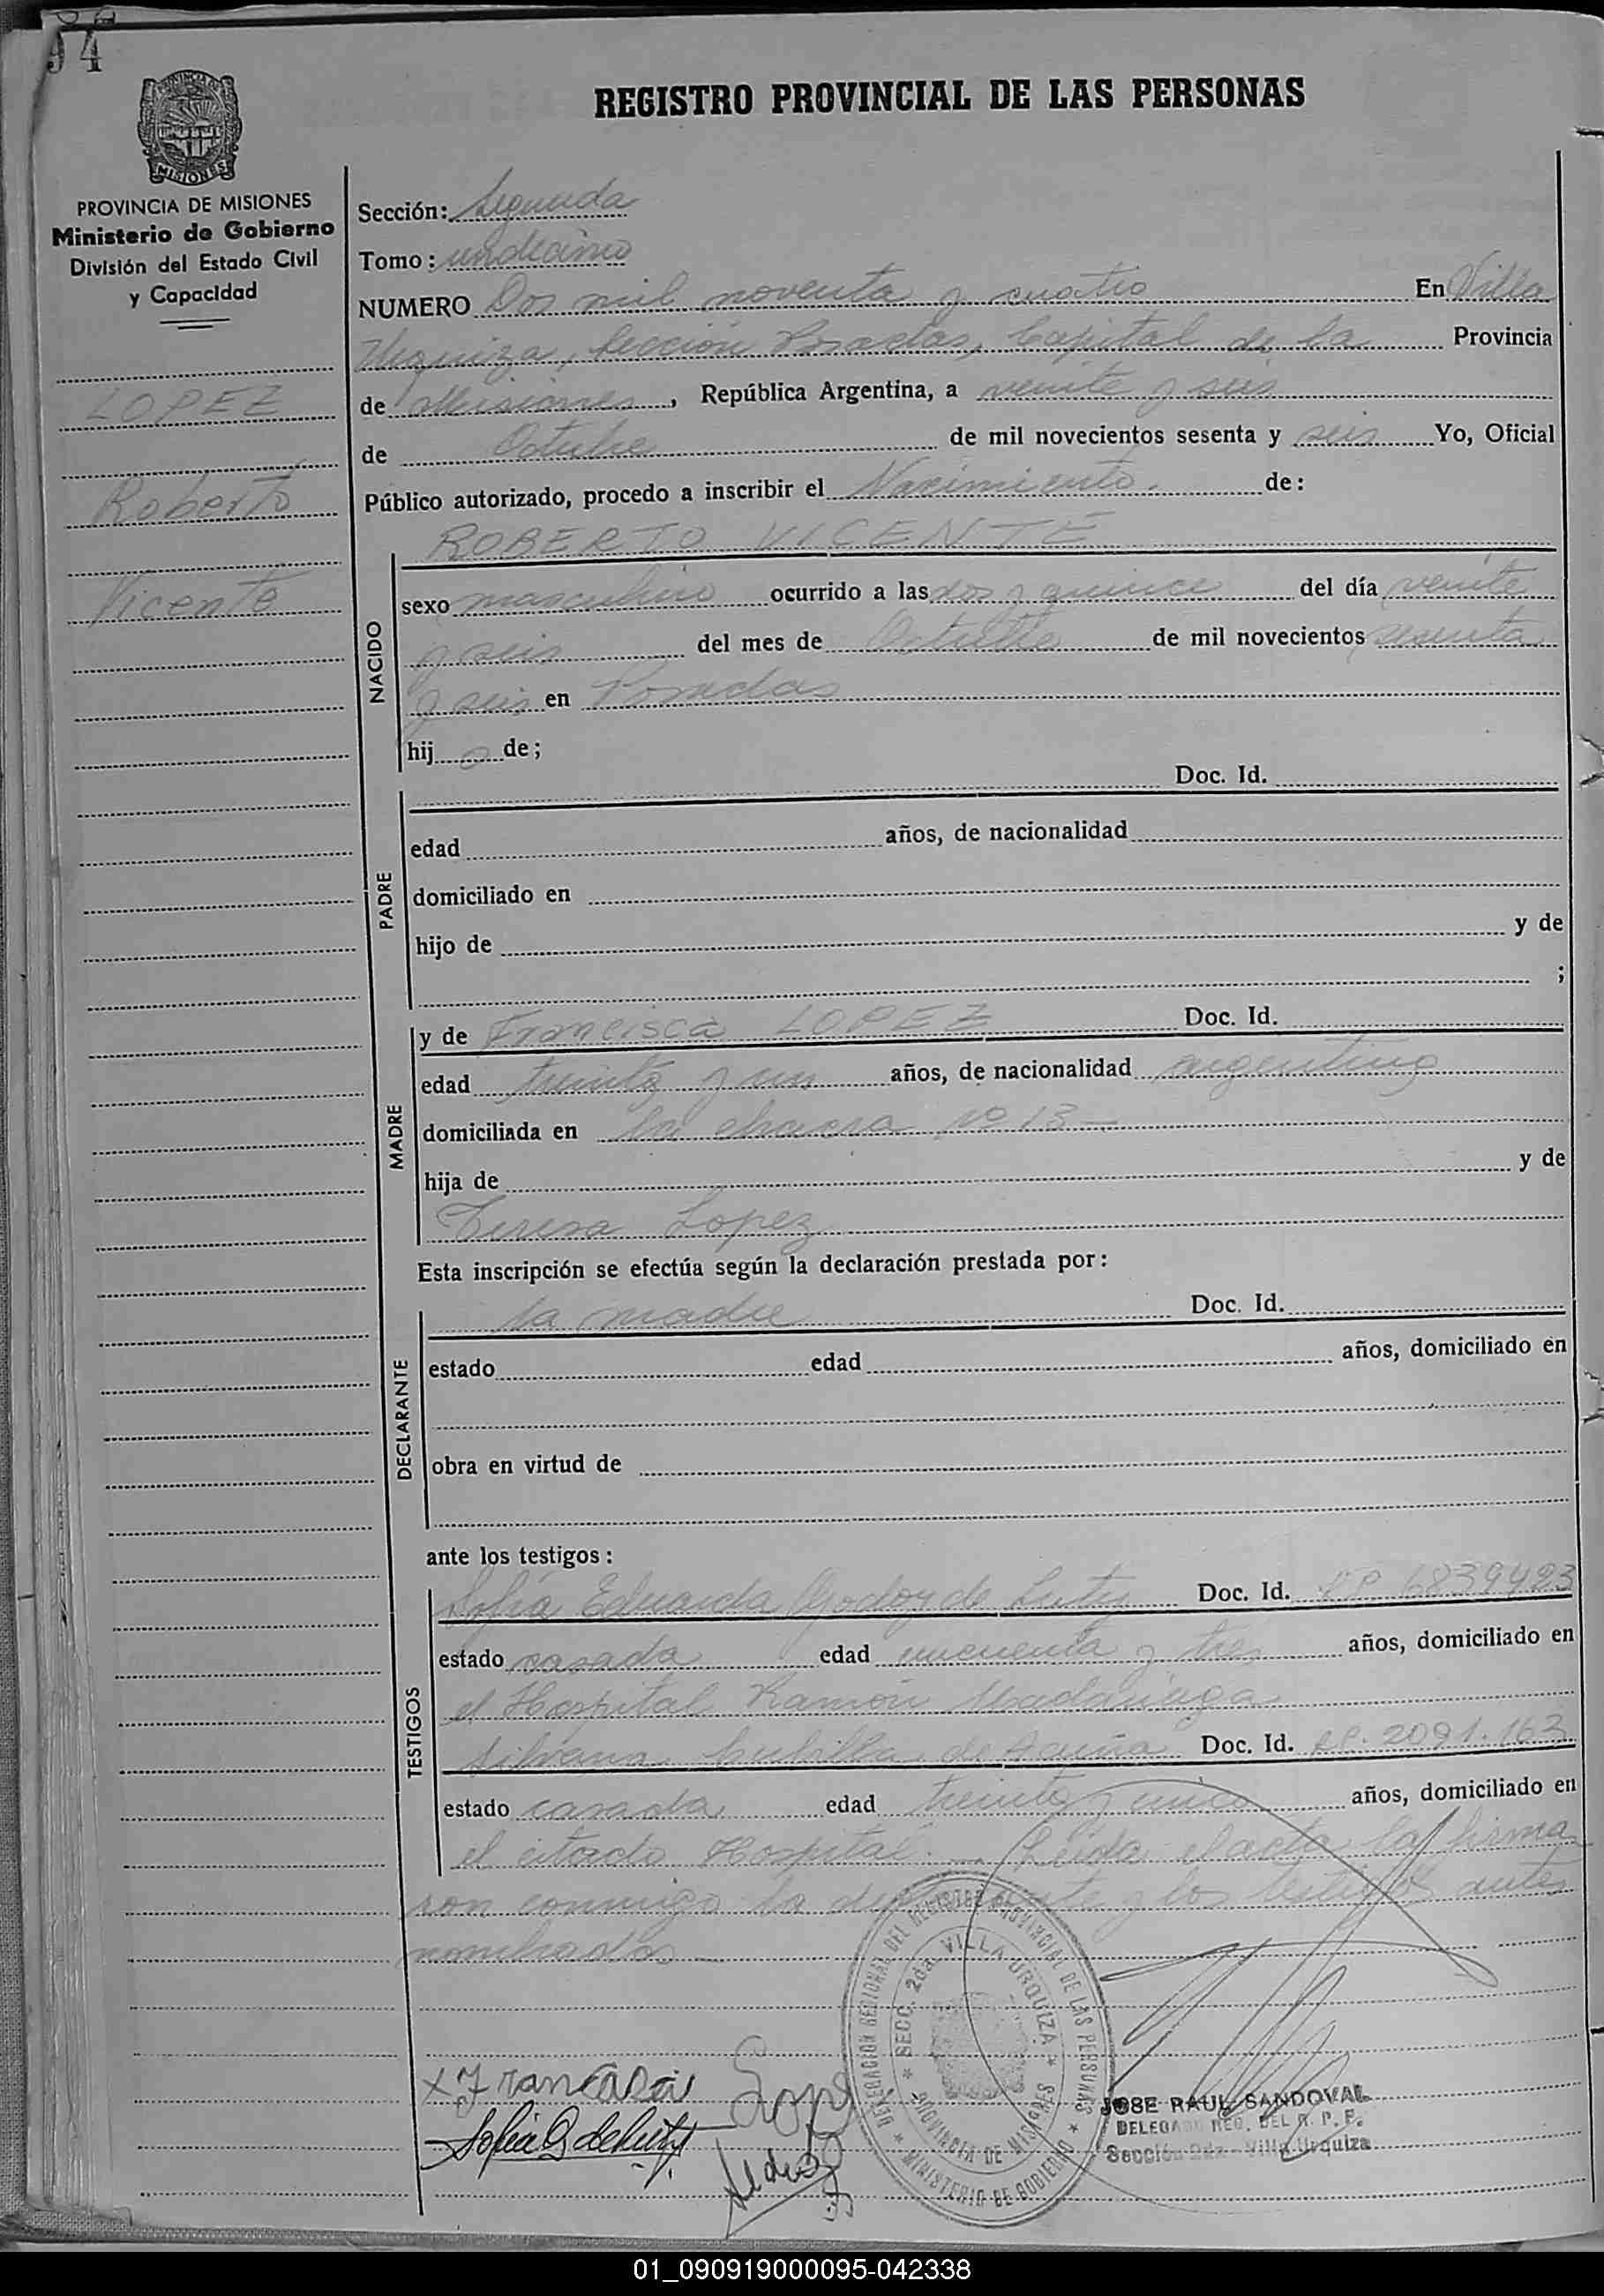 94
REGISTRO PROVINCIAL DE LAS PERSONAS
MISIONES
PROVINCIA DE MISIONES
Ministerio de Gobierno
División del Estado Civil
y Capacidad
LOPEZ
Roberto
Vicente
Sección: Segunda
Tomo: undécimo
NUMERO Dos mil noventa y cuatro En Villa
Urquiza, Sección Posadas, Capital de la Provincia
de Misiones, República Argentina, a veinte y seis
de Octubre de mil novecientos sesenta y seis Yo, Oficial
Público autorizado, procedo a inscribir el Nacimiento. de:
ROBERTO VICENTE
NACIDO
sexo masculino ocurrido a las dos y quince del día veinte
y seis del mes de Octubre de mil novecientos sesenta
y seis en Posadas
hij o de;
PADRE
Doc. Id.
edad años, de nacionalidad
domiciliado en
hijo de y de
;
MADRE
y de Francisca LOPEZ Doc. Id.
edad treinta y un años, de nacionalidad argentina
domiciliada en la chacra Nº 13-
hija de y de
Teresa Lopez
Esta inscripción se efectúa según la declaración prestada por:
DECLARANTE
la madre Doc. Id.
estado edad años, domiciliado en
obra en virtud de
ante los testigos:
TESTIGOS
Sofía Eduarda Godoy de Doc. Id. 6839493
estado casada edad cincuenta y tres años, domiciliado en
el Hospital Ramón Madariaga
Silvana Cubilla de Acuña Doc. Id. 2091.163
estado casada edad treinta y cinco años, domiciliado en
el citado Hospital. Leida el acta la firma
ron conmigo la y los testigos antes
nombrados
x Francisca Lopez
Sofia G de
DELEGACION REGIONAL DEL REGISTRO PROVINCIAL DE LAS PERSONAS
SECC. 2da. VILLA URQUIZA
PROVINCIA DE MISIONES
MINISTERIO DE GOBIERNO
JOSE RAUL SANDOVAL
DELEGADO REG. DEL R. P. P.
Sección 2da. - Villa Urquiza
01_090919000095-042338